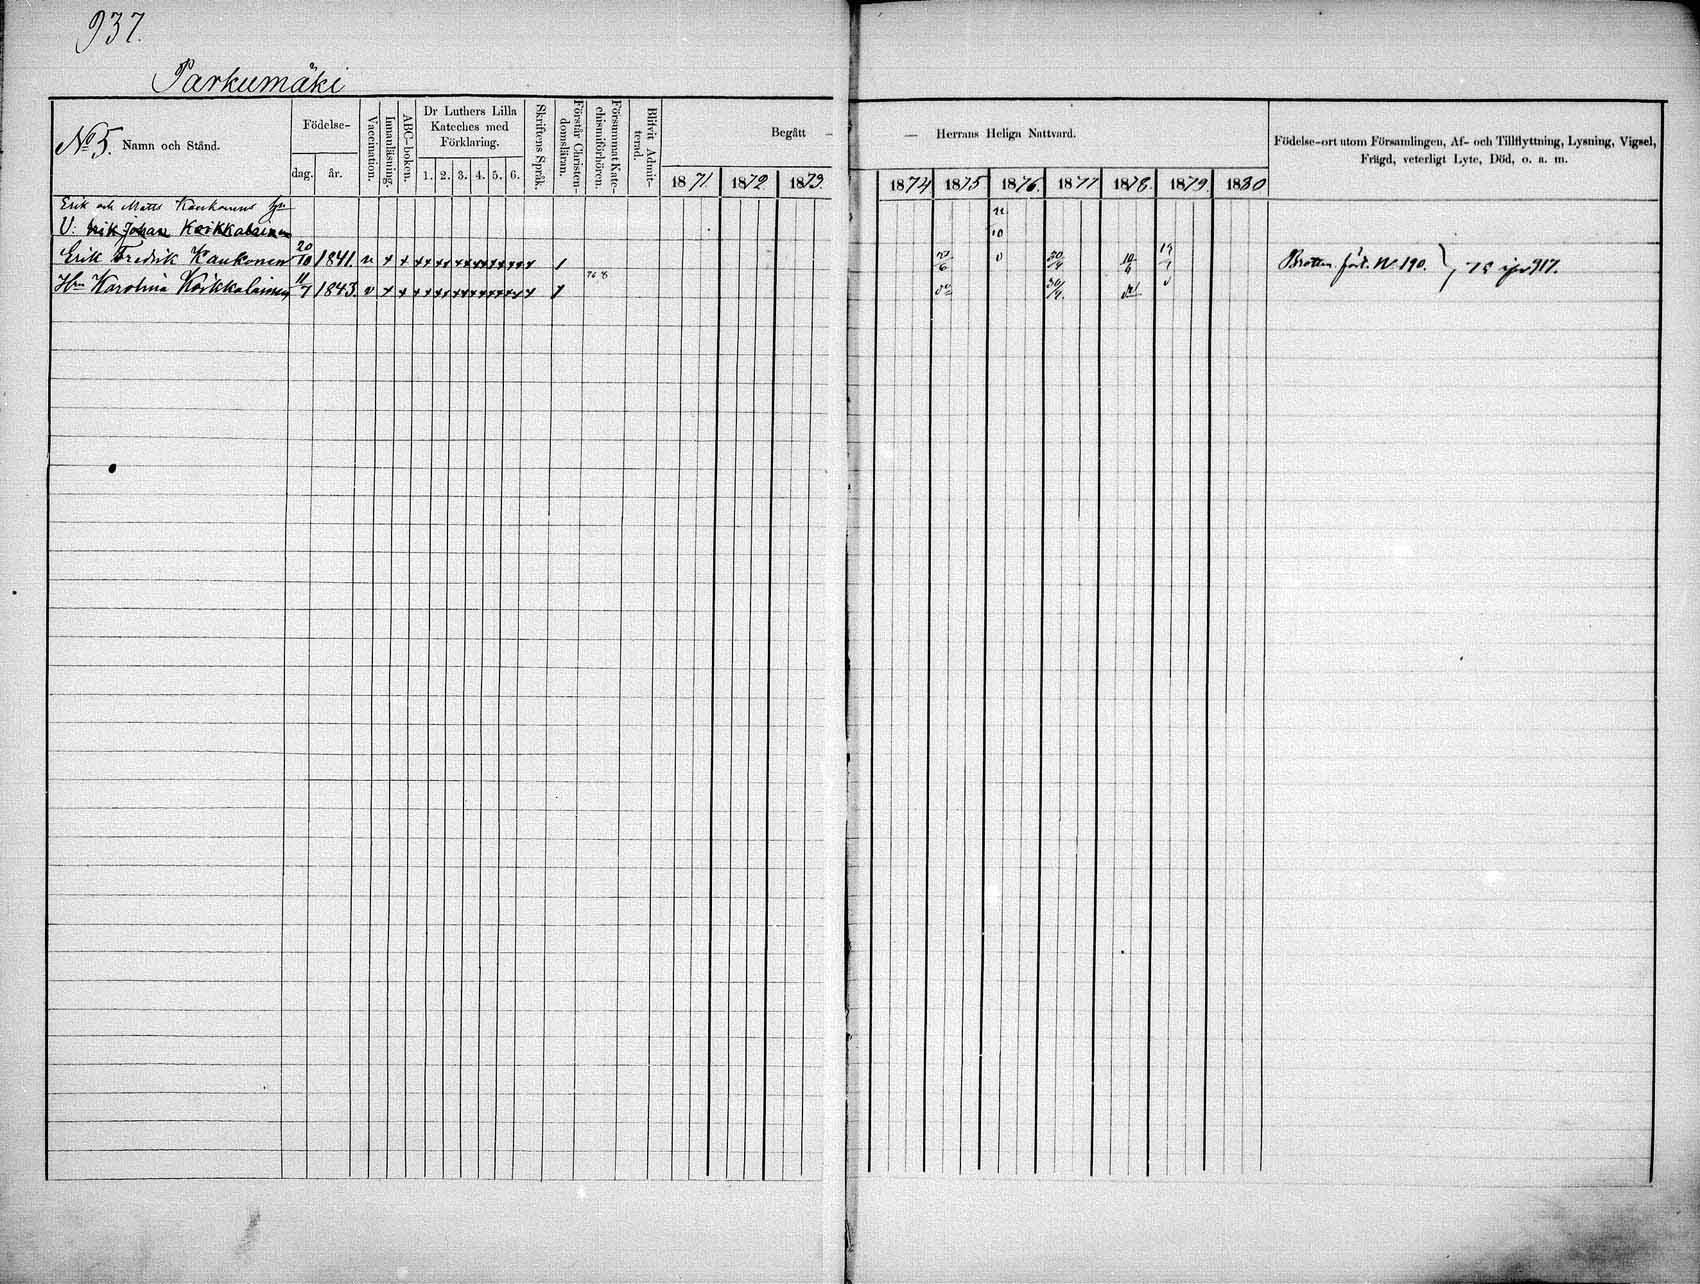 937.
Parkumäki
No 5. Namn och Stånd.
Födelse-
dag. år.
Vaccination.
Innanläsning.
ABC-boken.
Dr Luthers Lilla Kateches med Förklaring.
1. 2. 3. 4. 5. 6.
Skriftens Språk.
Förstår Christendomsläran.
Försummat Katechismiförhören.
Blifvit Admitterad.
Begått — — Herrans Heliga Nattvard.
1871 1872 1873. 1874 1875 1876. 1877 1878. 1879. 1880
Födelse-ort utom Församlingen, Af- och Tillflyttning, Lysning, Vigsel,
Frägd, veterligt Lyte, Död, o. a. m.
Erik och Matts Kaukonens
U: Erik Johan Koikkalainen
Erik Fredrik Kaukonen 20/10 1841. v x x 1
Brotten fört. N 190. 917.
Hru Karolina Koikkalainen 11/7 1843. v x x 1 76 8 30/4.